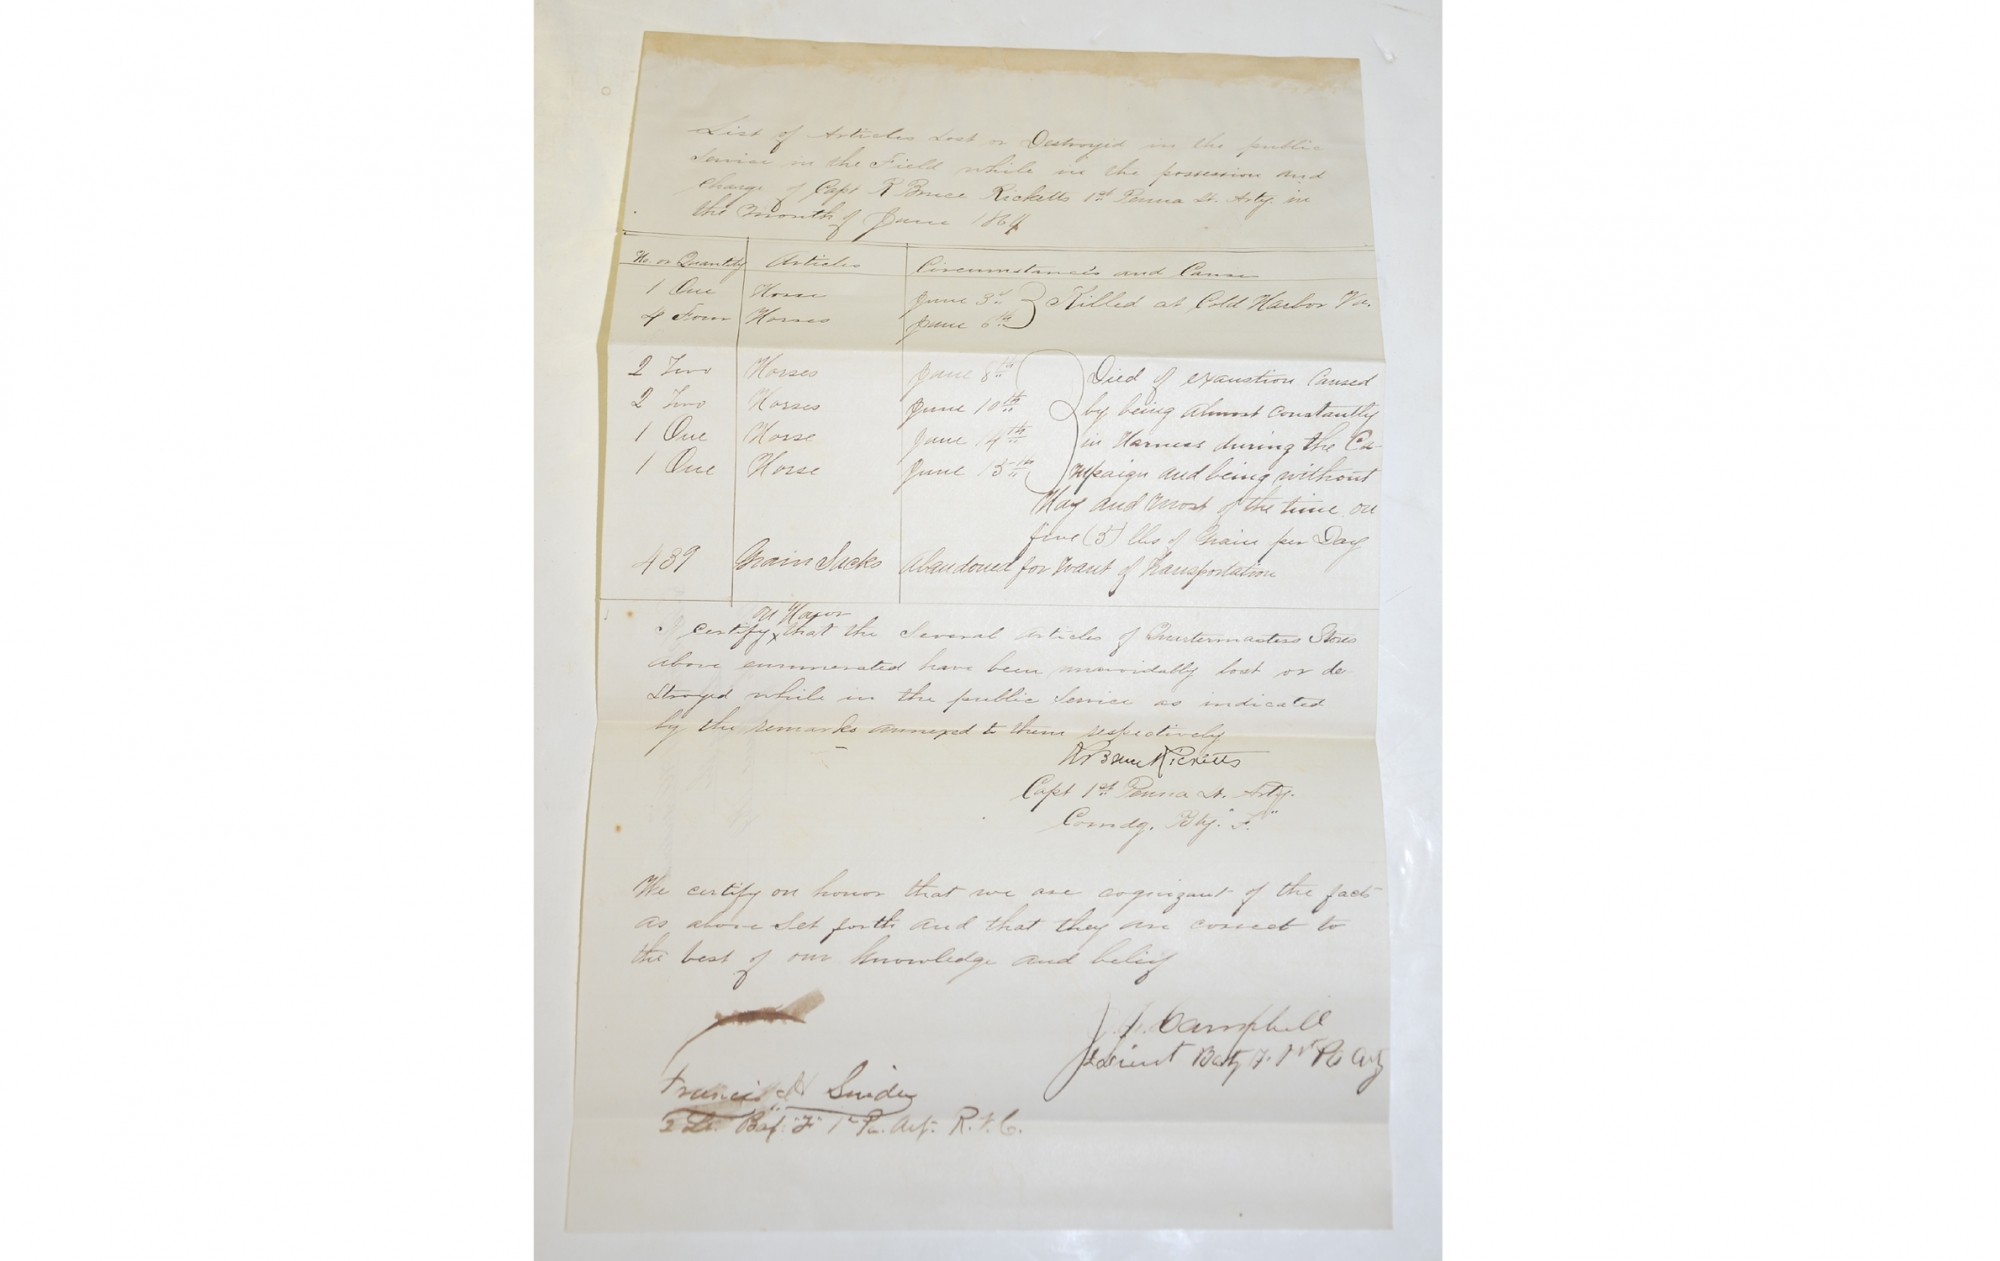 List of Articles Lost or Destroyed in the public
Service in the Field while in the possession and
charge of Capt R Bruce Ricketts 1st Penna Lt. Arty. in
the month of June 1864
No. or Quantity Articles Circumstances and Cause
1 One Horse June 3d } Killed at Cold Harbor Va.
4 Four Horses June 6th
2 Two Horses June 8th } Died of exaustion Caused
2 Two Horses June 10th by being almost constantly
1 One Horse June 14th in Harness during the Ca-
1 One Horse June 15th mpaign and being without
Hay and most of the time on
five (5) lbs of Grain per Day
439 Grain Sacks Abandoned for want of Transportation
on Honor
I certify x that the Several Articles of Quartermasters Stores
above enumerated have been unavoidably lost or de
stroyed while in the public Service as indicated
by the remarks annexed to them respectively
R Bruce Ricketts
Capt 1st Penna Lt. Arty.
Comdg. Bty. "F."
We certify on honor that we are cognizant of the facts
as above Set forth and that they are correct to
the best of our knowledge and belief
Campbell
Lieut Baty F. 1st Pa Arty
Francis H Snider
2 Lt. Bat. "F" 1st Pa. Art. R.V.C.